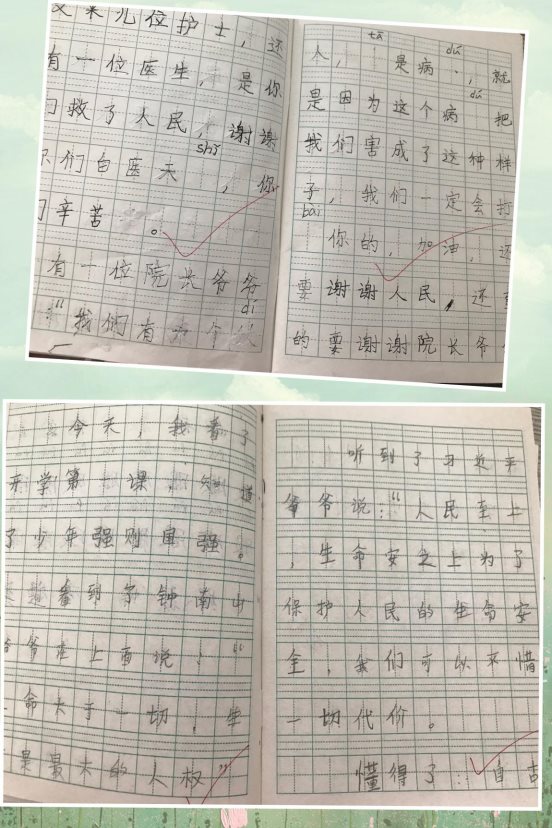 又来几位护士，还
有一位医生，是你
们救了人民，谢谢
shī
你们白医天，你
们辛苦。
有一位院长爷爷
dí
：“我们有一个
tā dú
人，是病，就
dú
是因为这个病把
我们害成了这种样
子，我们一定会打
bài
你的，加油，还
要谢谢人民，还要
的要谢谢院长爷
今天，我看了
开学第一课，知道
了少年强则国强。
看到了钟南山
爷爷在上面说：“
命大于一切，生
是最大的人权”
听到了习近平
爷爷说：“人民至上
，生命安之上为了
保护人民的生命安
全，我们可以不惜
一切代价。
懂得了：自古